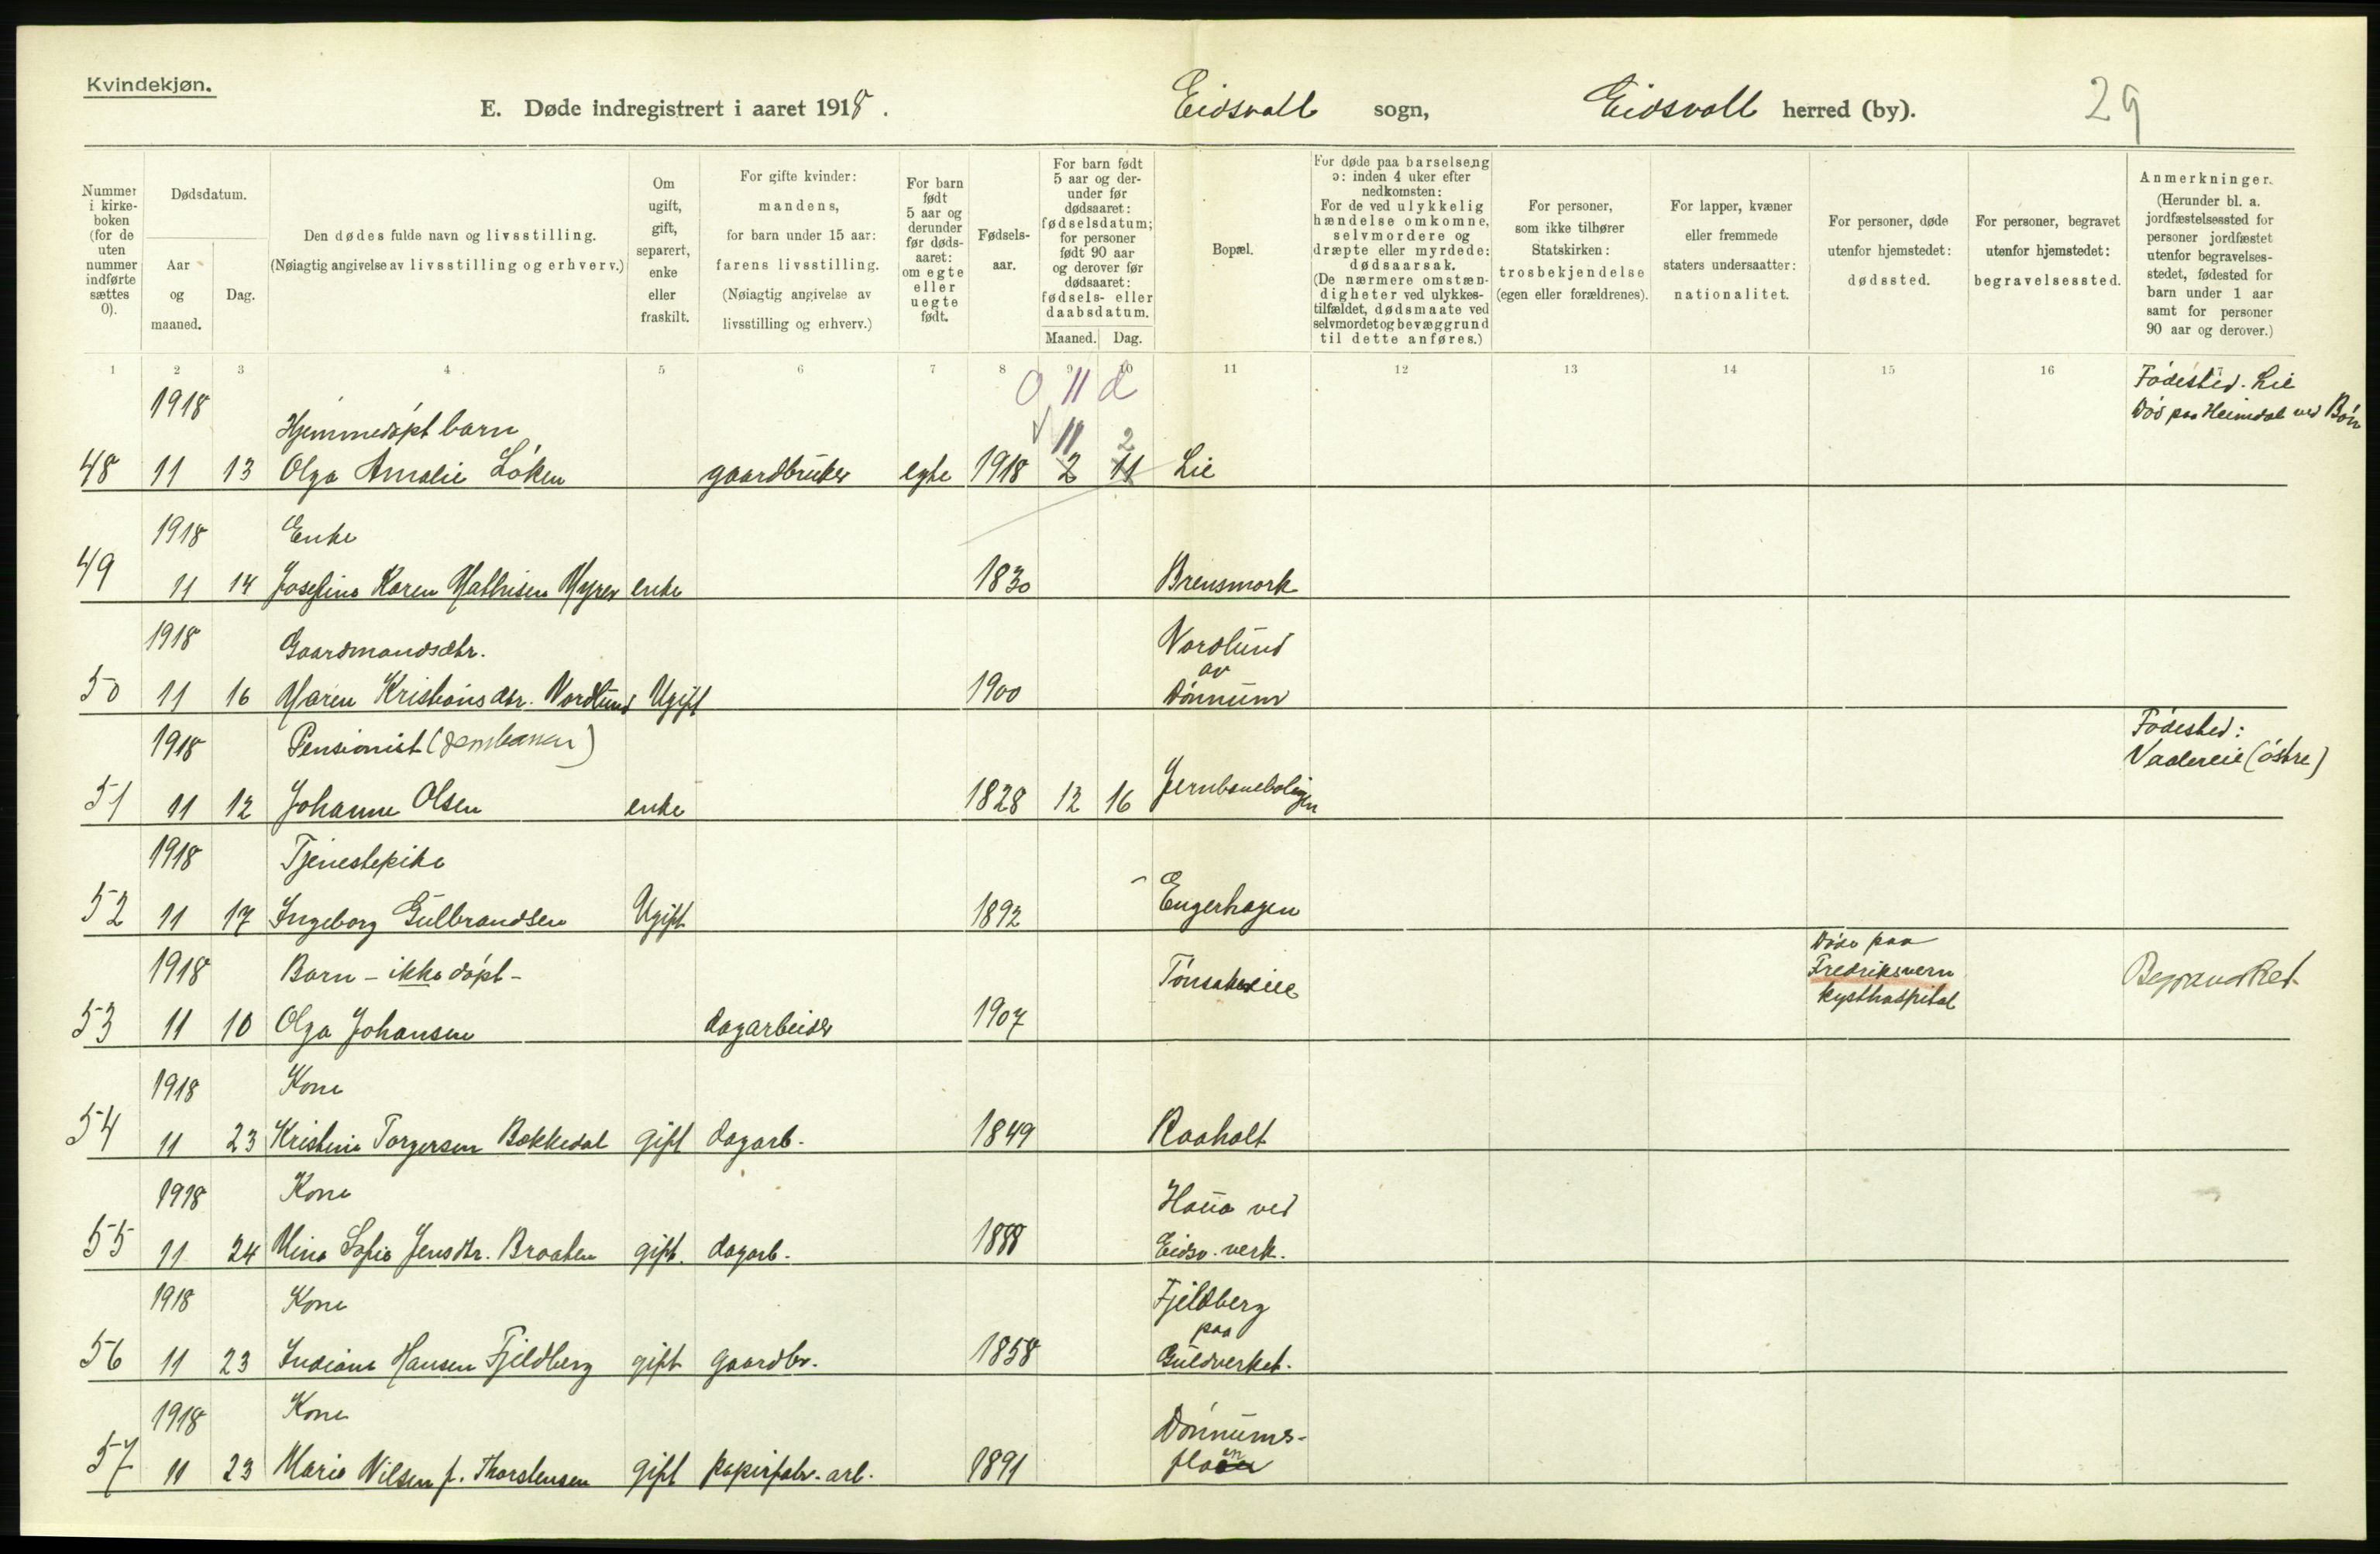 Kvindekjøn.
E. Døde indregistrert i aaret 1918.
Eidsvoll sogn,
Eidsvoll herred (by).
29
Nummer i kirkeboken (for de uten nummer indførte sættes 0).
Dødsdatum.
Aar og maaned.
Dag.
Den dødes fulde navn og livsstilling.
(Nøiagtig angivelse av livsstilling og erhverv.)
Om ugift, gift, separert, enke eller fraskilt.
For gifte kvinder: mandens,
for barn under 15 aar: farens livsstilling.
(Nøiagtig angivelse av livsstilling og erhverv.)
For barn født 5 aar og derunder før dødsaaret: om egte eller uegte født.
Fødselsaar.
For barn født 5 aar og derunder før dødsaaret: fødselsdatum; for personer født 90 aar og derover før dødsaaret: fødsels- eller daabsdatum.
Maaned. Dag.
Bopæl.
For døde paa barselseng ɔ: inden 4 uker efter nedkomsten:
For de ved ulykkelig hændelse omkomne, selvmordere og dræpte eller myrdede: dødsaarsak.
(De nærmere omstændigheter ved ulykkestilfældet, dødsmaate ved selvmordet og bevæggrund til dette anføres.)
For personer, som ikke tilhører Statskirken: trosbekjendelse (egen eller forældrenes).
For lapper, kvæner eller fremmede staters undersaatter: nationalitet.
For personer, døde utenfor hjemstedet: dødssted.
For personer, begravet utenfor hjemstedet: begravelsessted.
Anmerkninger.
(Herunder bl. a. jordfæstelsessted for personer jordfæstet utenfor begravelsesstedet, fødested for barn under 1 aar samt for personer 90 aar og derover.)
1 2 3 4 5 6 7 8 9 10 11 12 13 14 15 16
1918 Hjemmedøpt barn 11 2 Fødested. Lie
Død paa Heimdal ved Bøn
48 11 13 Olga Amalie Løken gaardbruker egte 1918 2 11 Lie
1918 Enke
49 11 14 Josefine Karen Mathisen Myrer enke 1830 Brensmork
1918 Gaardmandsdtr. Nordlund
av
50 11 16 Maren Kristiansdtr. Nordlund Ugift 1900 Dønnum
1918 Pensionist (Jernbanen) Fødested:
Vaalereie (østre)
51 11 12 Johanne Olsen enke 1828 12 16 Jernbaneboligen
1918 Tjenestepike
52 11 17 Ingeborg Gulbrandsen Ugift 1892 Engerhagen
1918 Barn - ikke døpt - Tønsakereie Døde paa
Fredriksvern
kysthospital
53 11 10 Olga Johansen dagarbeider 1907
1918 Kone
54 11 23 Kristine Torgersen Bekkedal gift dagarb. 1849 Raaholt
1918 Kone Haua ved
55 11 24 Mina Sofie Jensdtr. Braaten gift. dagarb. 1888 Eidsv. verk.
1918 Kone Fjeldberg
paa
56 11 23 Indiane Hansen Fjeldberg gift gaardbr. 1858 Guldverket.
1918 Kone Dønnums-
57 11 23 Marie Nilsen f. Thorstensen gift papirfabr. arb. 1891 floen